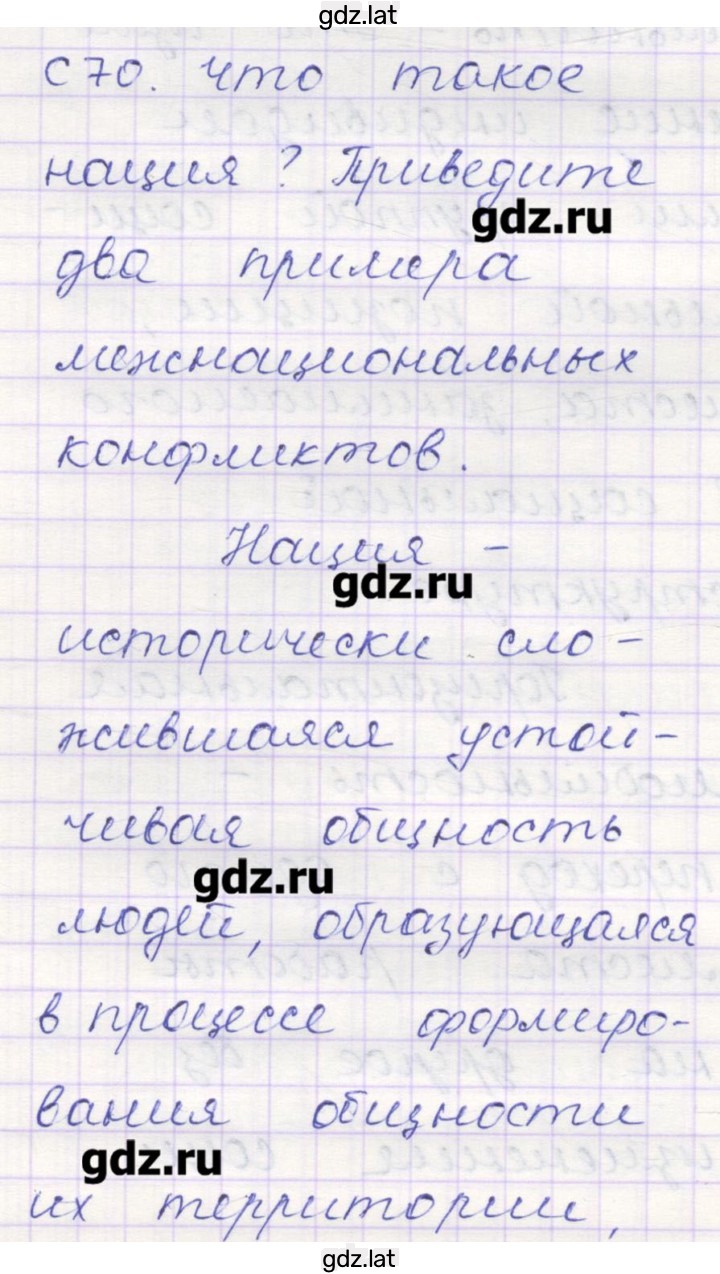 gdz.lat
С 70. Что такое
нация? Приведите
gdz.ru
два примера
межнациональных
конфликтов.
Нация -
gdz.ru
исторически сло-
жившаяся устой-
чивая общность
gdz.ru
людей, образующаяся
в процессе формиро-
вания общности
gdz.ru
их территории,
gdz.lat